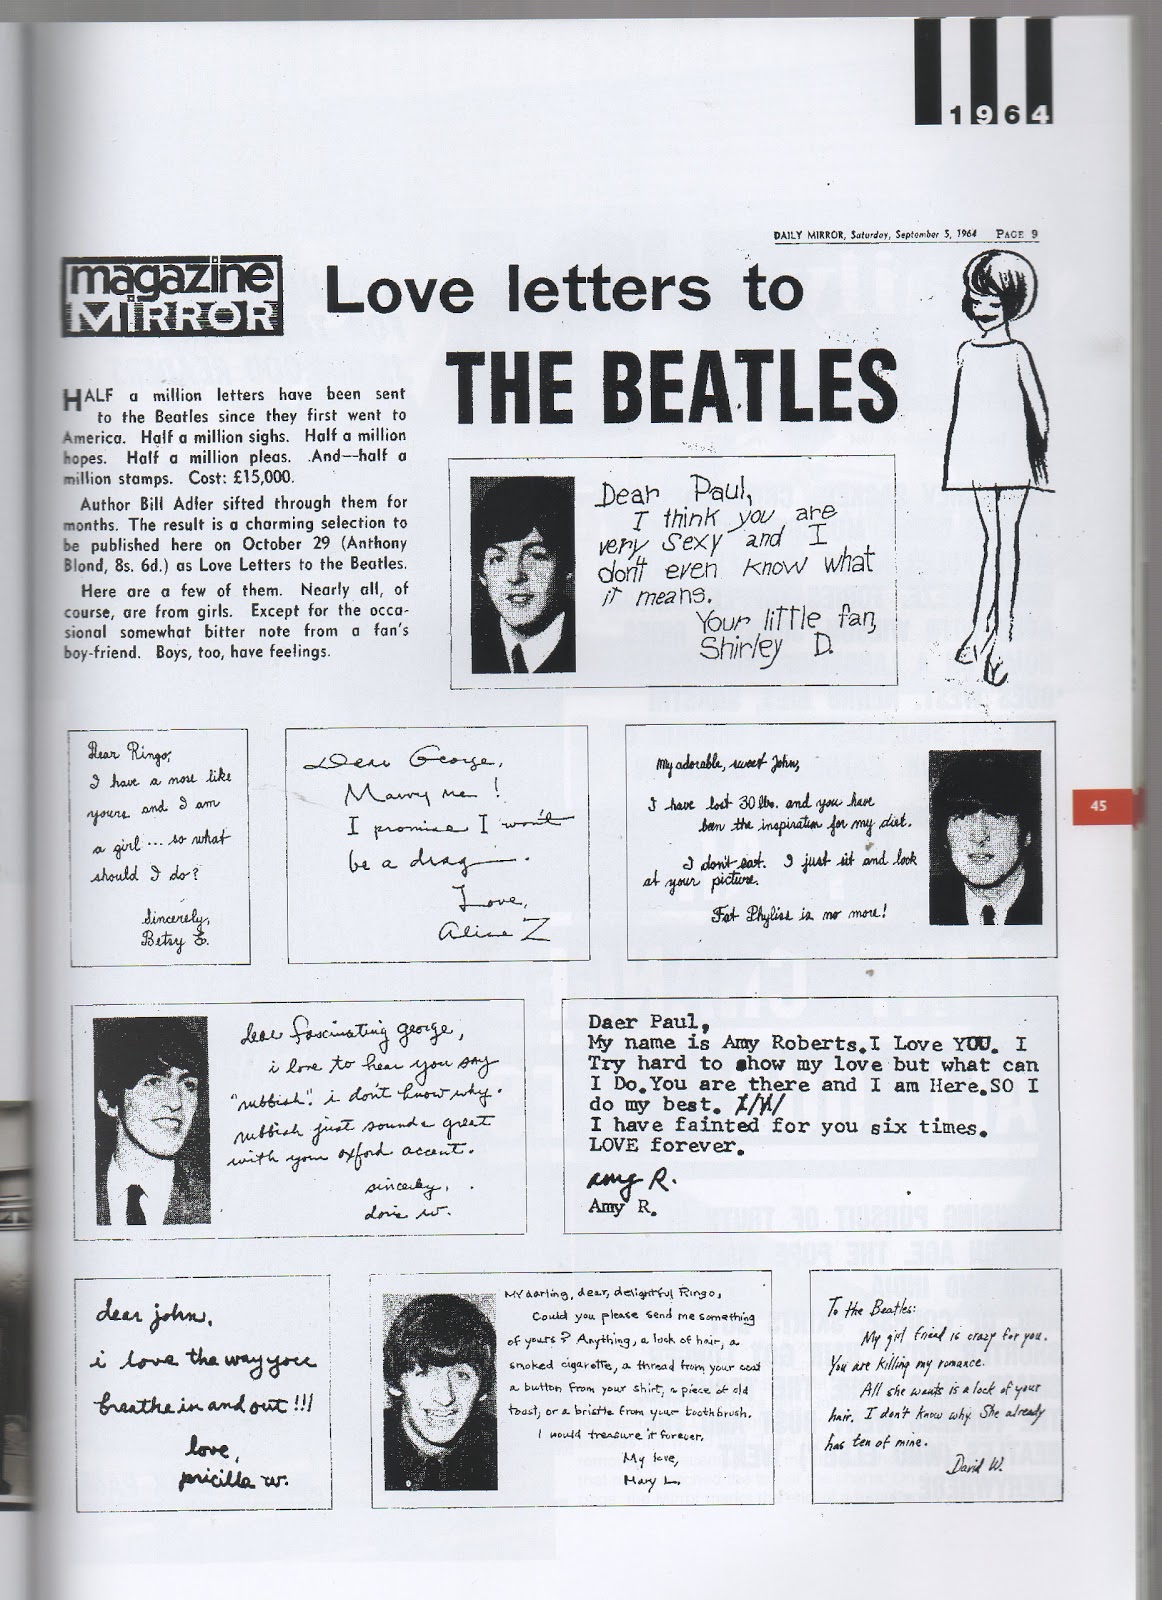 1964
DAILY MIRROR, Saturday, September 5, 1964 PAGE 9
magazine
MIRROR
Love letters to
THE BEATLES
HALF a million letters have been sent
to the Beatles since they first went to
America. Half a million sighs. Half a million
hopes. Half a million pleas. And—half a
million stamps. Cost: £15,000.
Author Bill Adler sifted through them for
months. The result is a charming selection to
be published here on October 29 (Anthony
Blond, 8s. 6d.) as Love Letters to the Beatles.
Here are a few of them. Nearly all, of
course, are from girls. Except for the occa-
sional somewhat bitter note from a fan's
boy-friend. Boys, too, have feelings.
Dear Paul,
I think you are
very sexy and I
don't even know what
it means.
Your little fan,
Shirley D.
Dear Ringo,
I have a nose like
yours and I am
a girl ... so what
should I do?
Sincerely,
Betsy E.
Dear George,
Marry me!
I promise I won't
be a drag.
Love,
Alice Z
My adorable, sweet John,
I have lost 30 lbs. and you have
been the inspiration for my diet.
I don't eat. I just sit and look
at your picture.
Fat Phyliss is no more!
45
dear fascinating george,
i love to hear you say
"rubbish". i don't know why.
rubbish just sounds great
with your oxford accent.
sincerely,
doris w.
Daer Paul,
My name is Amy Roberts.I Love YOU. I
Try hard to show my love but what can
I Do.You are there and I am Here.SO I
do my best.
I have fainted for you six times.
LOVE forever.
amy R.
Amy R.
dear john,
i love the way you
breathe in and out!!!
love,
pricilla w.
My darling, dear, delightful Ringo,
Could you please send me something
of yours? Anything, a lock of hair, a
smoked cigarette, a thread from your coat
a button from your shirt, a piece of old
toast, or a bristle from your toothbrush.
I would treasure it forever.
My love,
Mary L.
To the Beatles:
My girl friend is crazy for you.
You are killing my romance.
All she wants is a lock of your
hair. I don't know why. She already
has ten of mine.
David W.